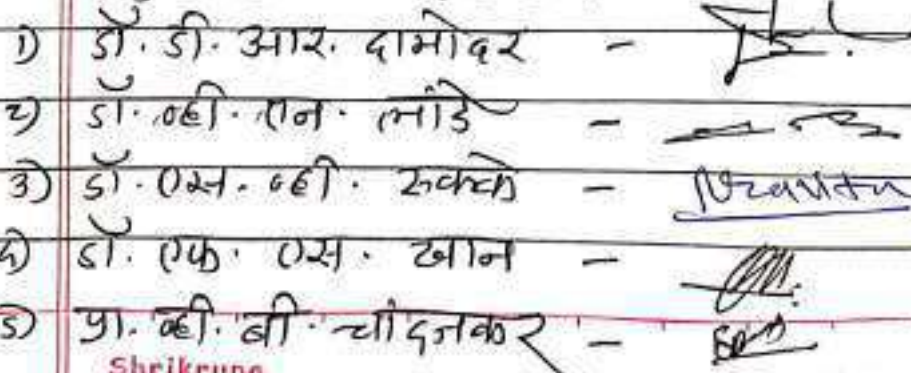 १) डॉ. डी. आर. दामोदर -
२) डॉ. व्ही. एन. लांडे -
३) डॉ. एस. व्ही. -
४) डॉ. एफ. एस. खान -
५) प्रा. व्ही. बी. चांदनकर -
Shrikrupa